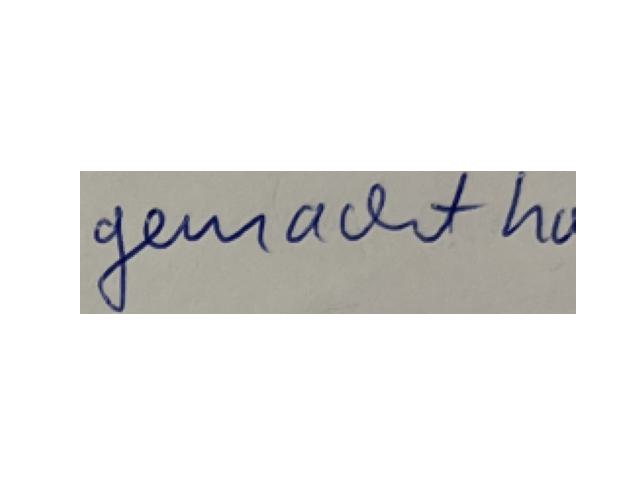 gemacht ha